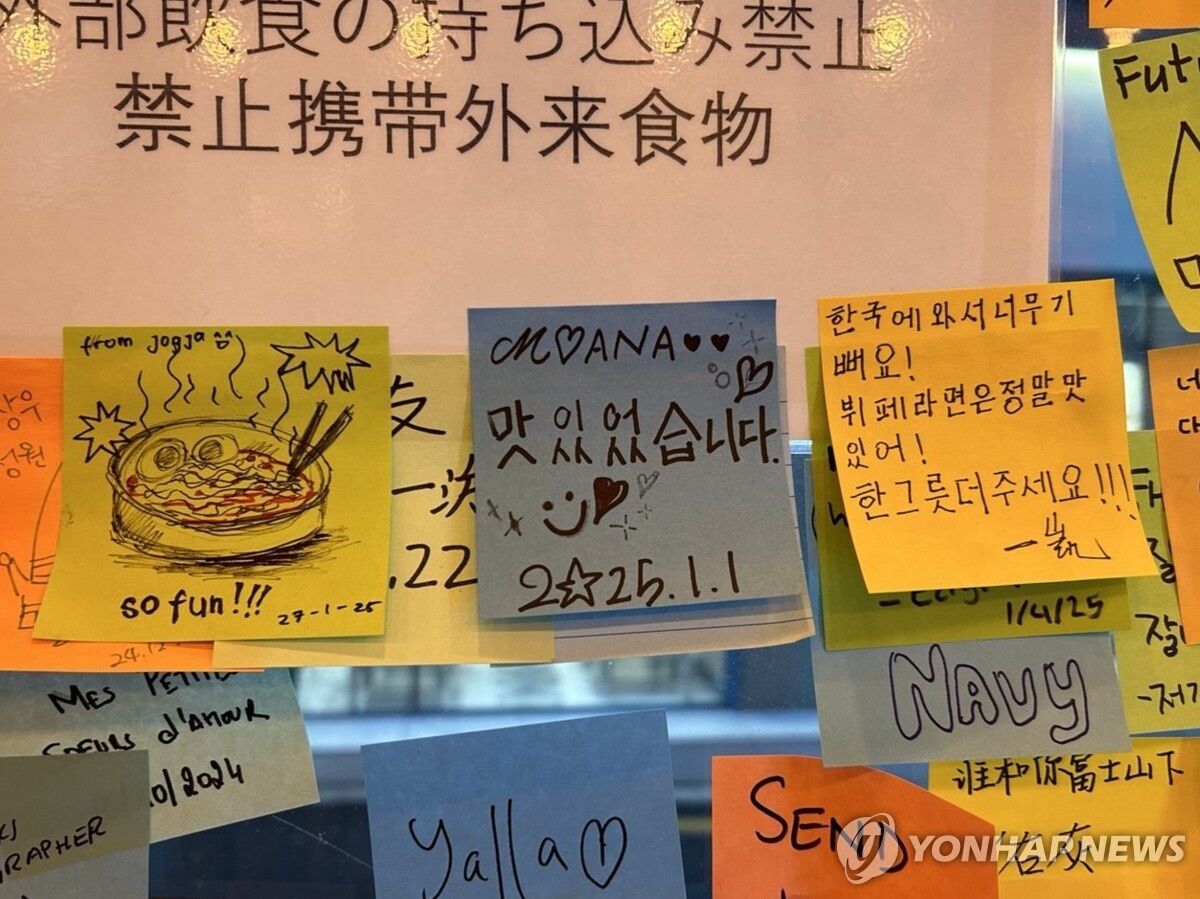 外部飲食の持ち込み禁止
禁止携帯外来食物
from jogja
so fun!!!
27-1-25
24.12
友
.22
MOANA
맛있었습니다.
2☆25.1.1
한국에와서너무기
뻐요!
뷔페라면은정말맛
있어!
한그릇더주세요!!!
1/4/25
NAVY
MES
SOEURS d'AMOUR
10/2024
GRAPHER
yalla
SEND
谁和你富士山下
YONHAPNEWS